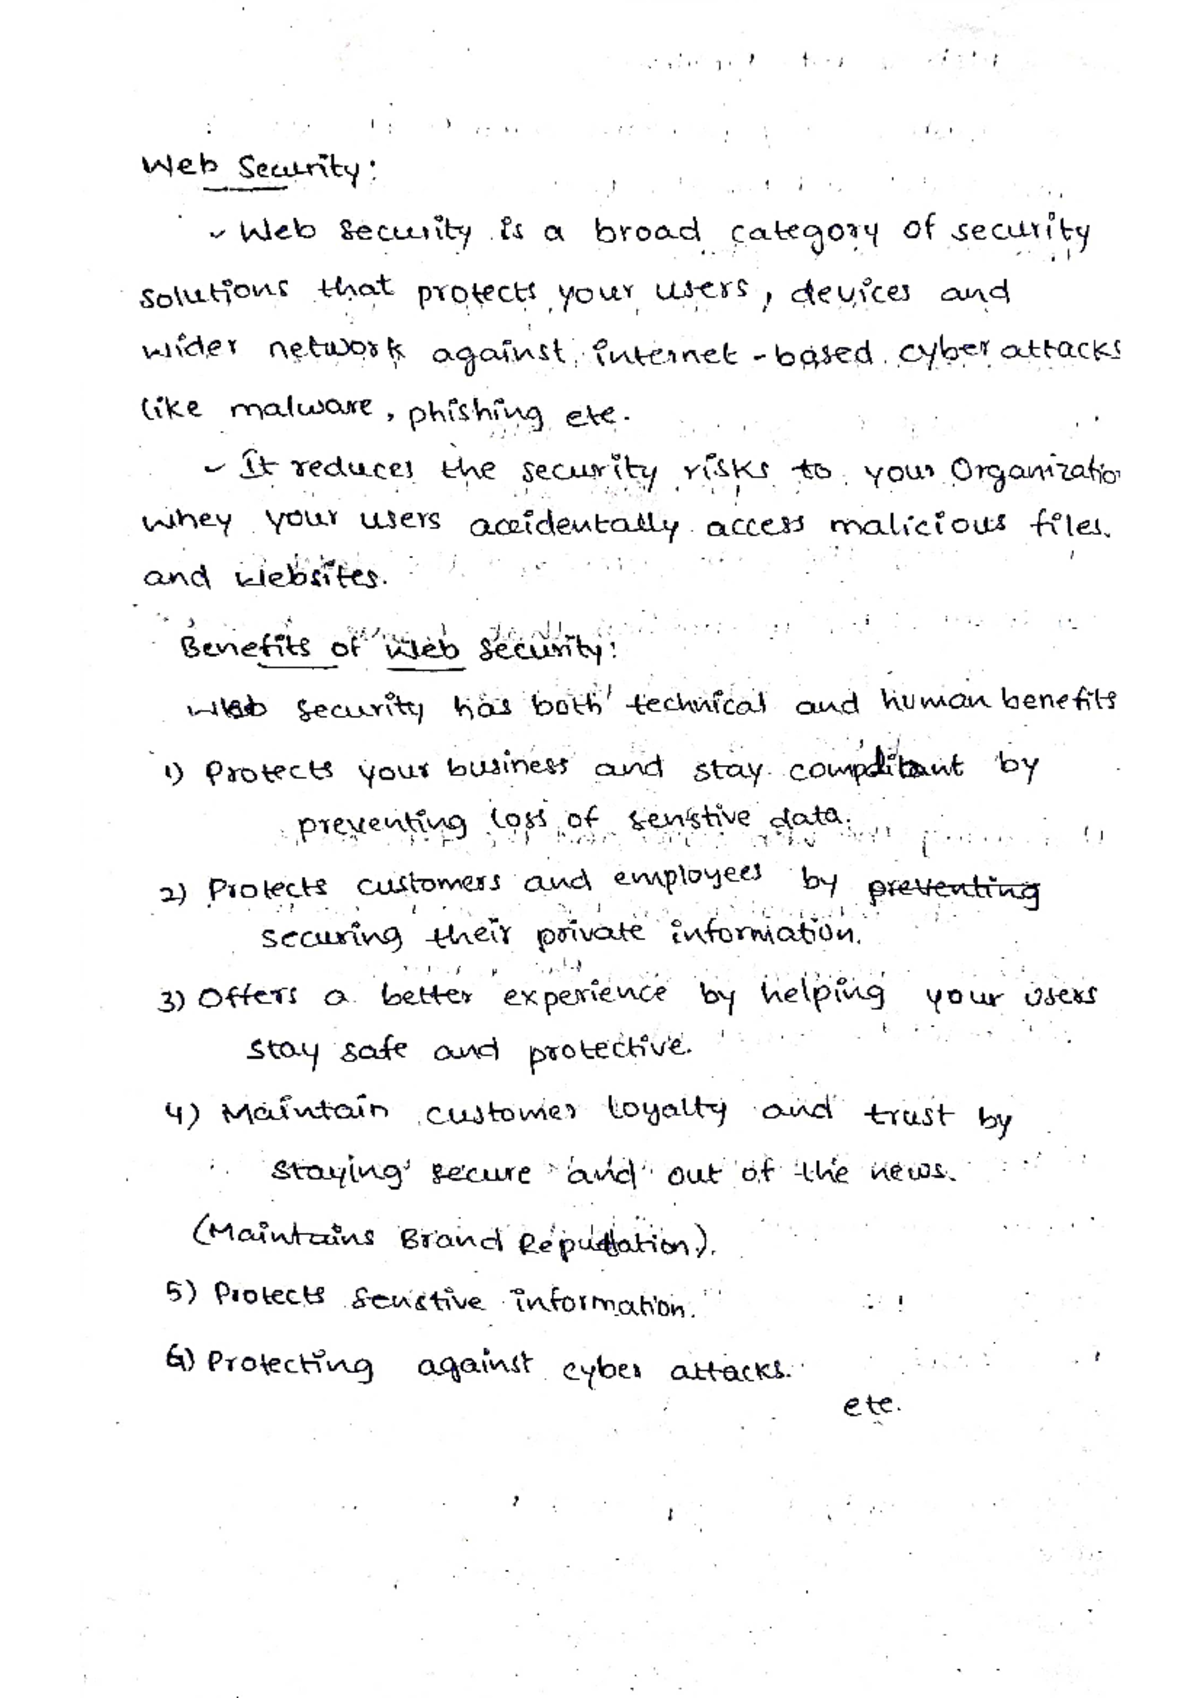 Web Security:
- Web Security is a broad category of security
solutions that protects your users, devices and
wider network against internet-based cyber attacks
like malware, phishing etc.
- It reduces the security risks to your Organizatio
whey your users accidentally access malicious files.
and websites.
Benefits of Web Security:
Web security has both technical and human benefits
1) Protects your business and stay by
preventing loss of senstive data.
2) Protects customers and employees by preventing
securing their private information.
3) Offers a better experience by helping your users
stay safe and protective.
4) Maintain customer loyalty and trust by
staying secure and out of the news.
(Maintains Brand Reputation).
5) Protects senstive information.
6) Protecting against cyber attacks.
etc.